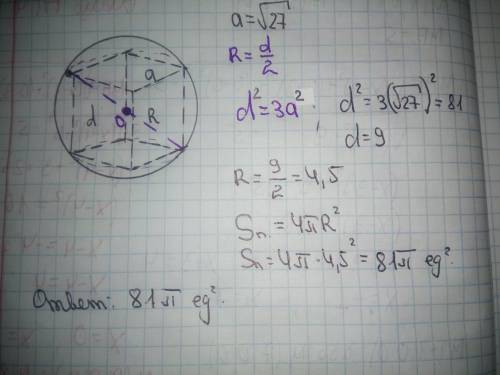 a = √27
R = d/2
d² = 3a² ; d² = 3(√27)² = 81
d = 9
R = 9/2 = 4,5
Sп = 4πR²
Sп = 4π · 4,5² = 81π eg².
Ответ: 81π eg².
a
d
O
R